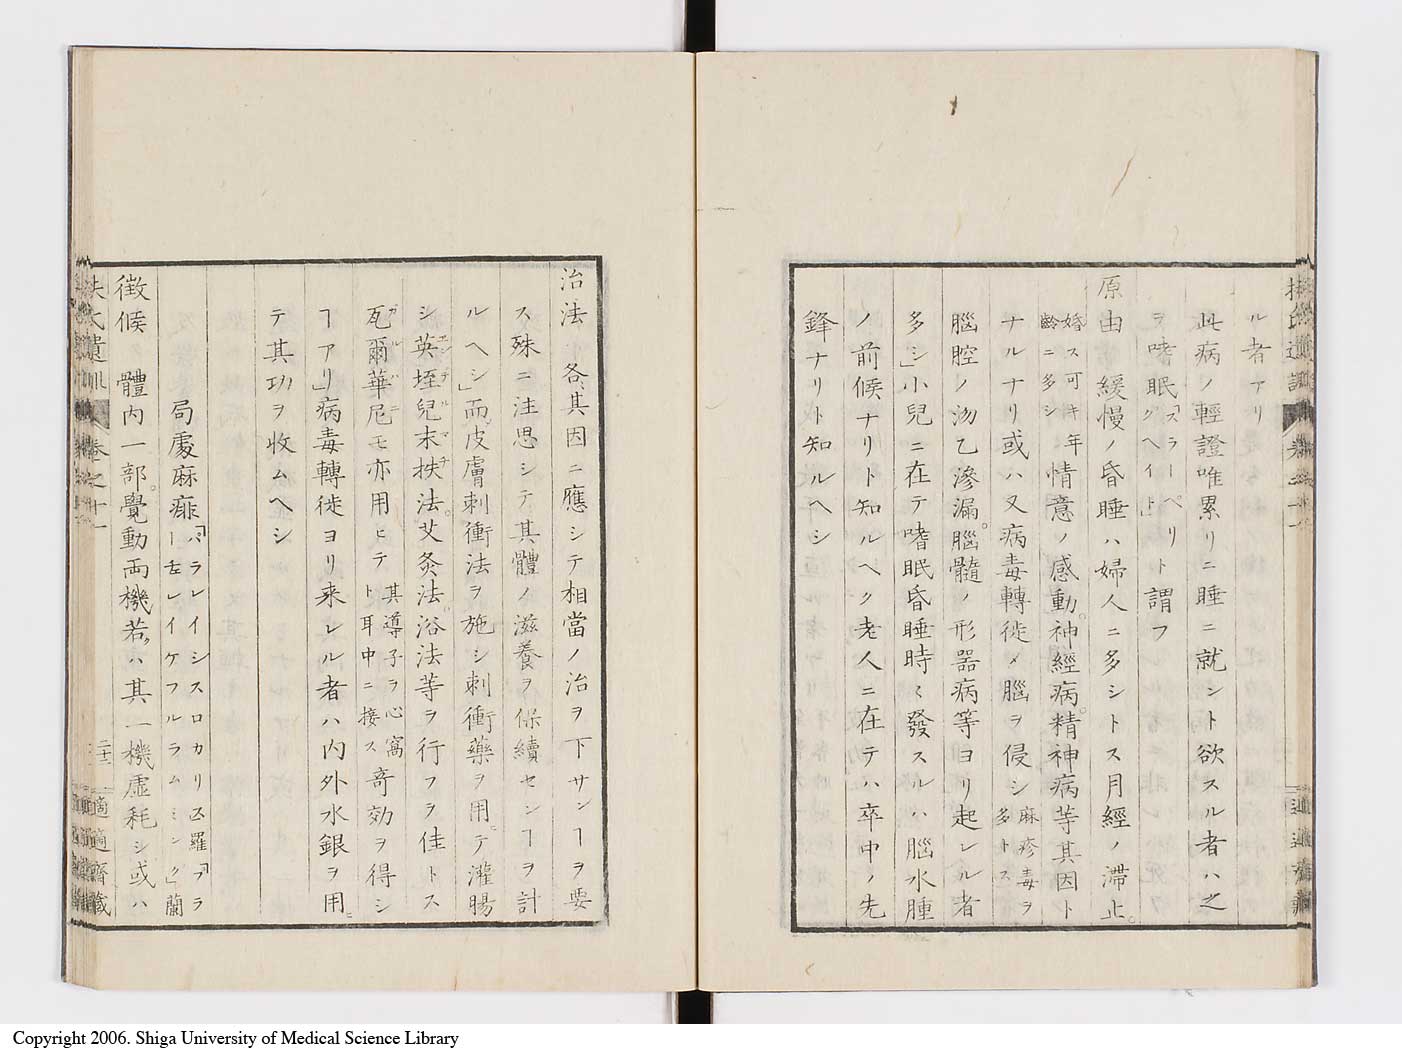 ル者アリ
此病ノ輕證唯累リニ睡ニ就ント欲スル者ハ之
ヲ嗜眠「スラーペリグヘイト」ト謂フ
原由 緩慢ノ昏睡ハ婦人ニ多シトス月經ノ滞止」
婚ス可キ年齡ニ多シ 情意ノ感動。神經病。精神病等其因ト
ナルナリ或ハ又病毒轉徙メ腦ヲ侵シ 麻疹毒ヲ多トス
腦腔ノ沕乙滲漏。腦髓ノ形器病等ヨリ起レル者
多シ」小兒ニ在テ嗜眠昏睡時々發スルハ腦水腫
ノ前候ナリト知ルヘク老人ニ在テハ卒中ノ先
鋒ナリト知ルヘシ
治法 各其因ニ應シテ相當ノ治ヲ下サンヿヲ要
ス殊ニ注思シテ其體ノ滋養ヲ保續センヿヲ計
ルヘシ」而皮膚刺衝法ヲ施シ刺衝藥ヲ用テ灌腸
シ英垤兒末抶法。艾灸法。浴法等ヲ行フヲ佳トス
エンデルマチ
瓦爾華尼モ亦用ヒテ 其導子ヲ心窩ト耳中ニ接ス 奇効ヲ得シ
ガルハニー
ヿアリ」病毒轉徙ヨリ来レル者ハ内外水銀ヲ用ヒ
テ其功ヲ收ムヘシ
局處麻痱「パラレイシスロカリス」羅「プラーセレイケフルラムミング」蘭
徴候 體内一部。覺動両機若クハ其一機虚耗シ或ハ
扶氏遺訓 卷之十一 二十二 適適齋藏